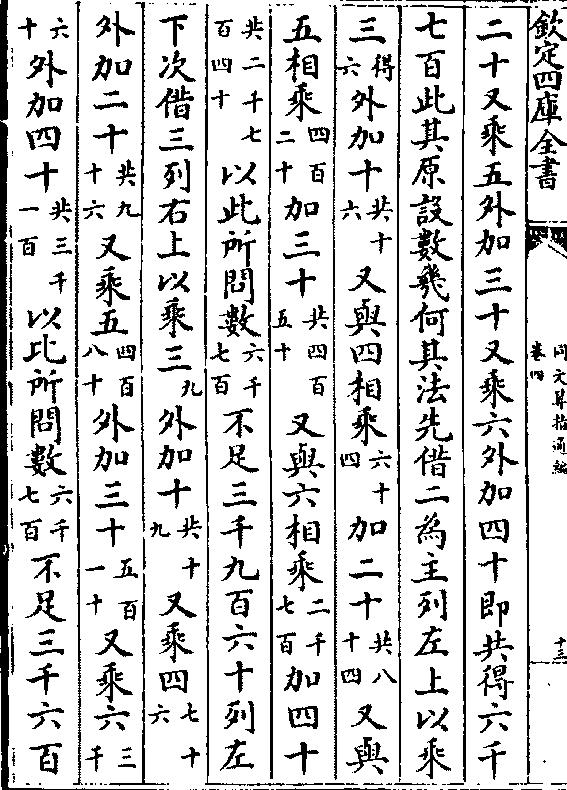 欽定四庫全書
同文算指通編
卷四
十三
二十又乘五外加三十又乘六外加四十即共得六千
七百此其原設數幾何其法先借二為主列左上以乘
三得六外加十共十六又與四相乘六十四加二十共八十四又與
五相乘四百二十加三十共四百五十又與六相乘二千七百加四十
共二千七百四十以此所問數六千七百不足三千九百六十列左
下次借三列右上以乘三九外加十共十九又乘四七十六
外加二十共九十六又乘五四百八十外加三十五百一十又乘六三千
六十外加四十共三千一百以比所問數六千七百不足三千六百